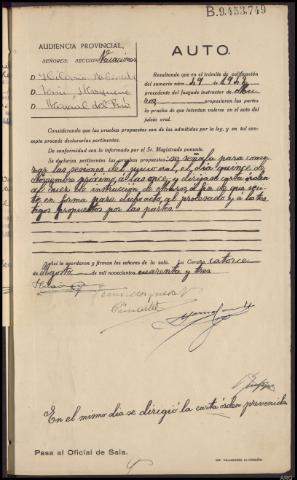 B.9.453.749
AUDIENCIA PROVINCIAL
SEÑORES: SECCIÓN Vacaciones
D. Hilario
D. José
D. Manuel del Río
AUTO.
Resultando que en el trámite de calificación
del sumario núm. 49 de 1941
procedente del Juzgado instructor de
propusieron las partes
la prueba de que intentan valerse en el acto del
juicio oral.
Considerando que las pruebas propuestas son de las admitidas por la ley, y en tal
concepto procede declararlas pertinentes.
De conformidad con lo informado por el Sr. Magistrado ponente.
Se declaran pertinentes las pruebas propuestas se señala para comen-
zar las sesiones del juicio oral, el día quince de
Noviembre próximo, a las once, y diríjase carta orden
al Juez de instrucción de a fin de que
en forma para dicho acto, al procesado y a los tes-
tigos propuestos por las partes
Así lo acordaron y firman los señores de la sala. La Coruña catorce
de Agosto de mil novecientos cuarenta y tres
En el mismo día se dirigió la carta órden prevenida
Pasa al Oficial de Sala.